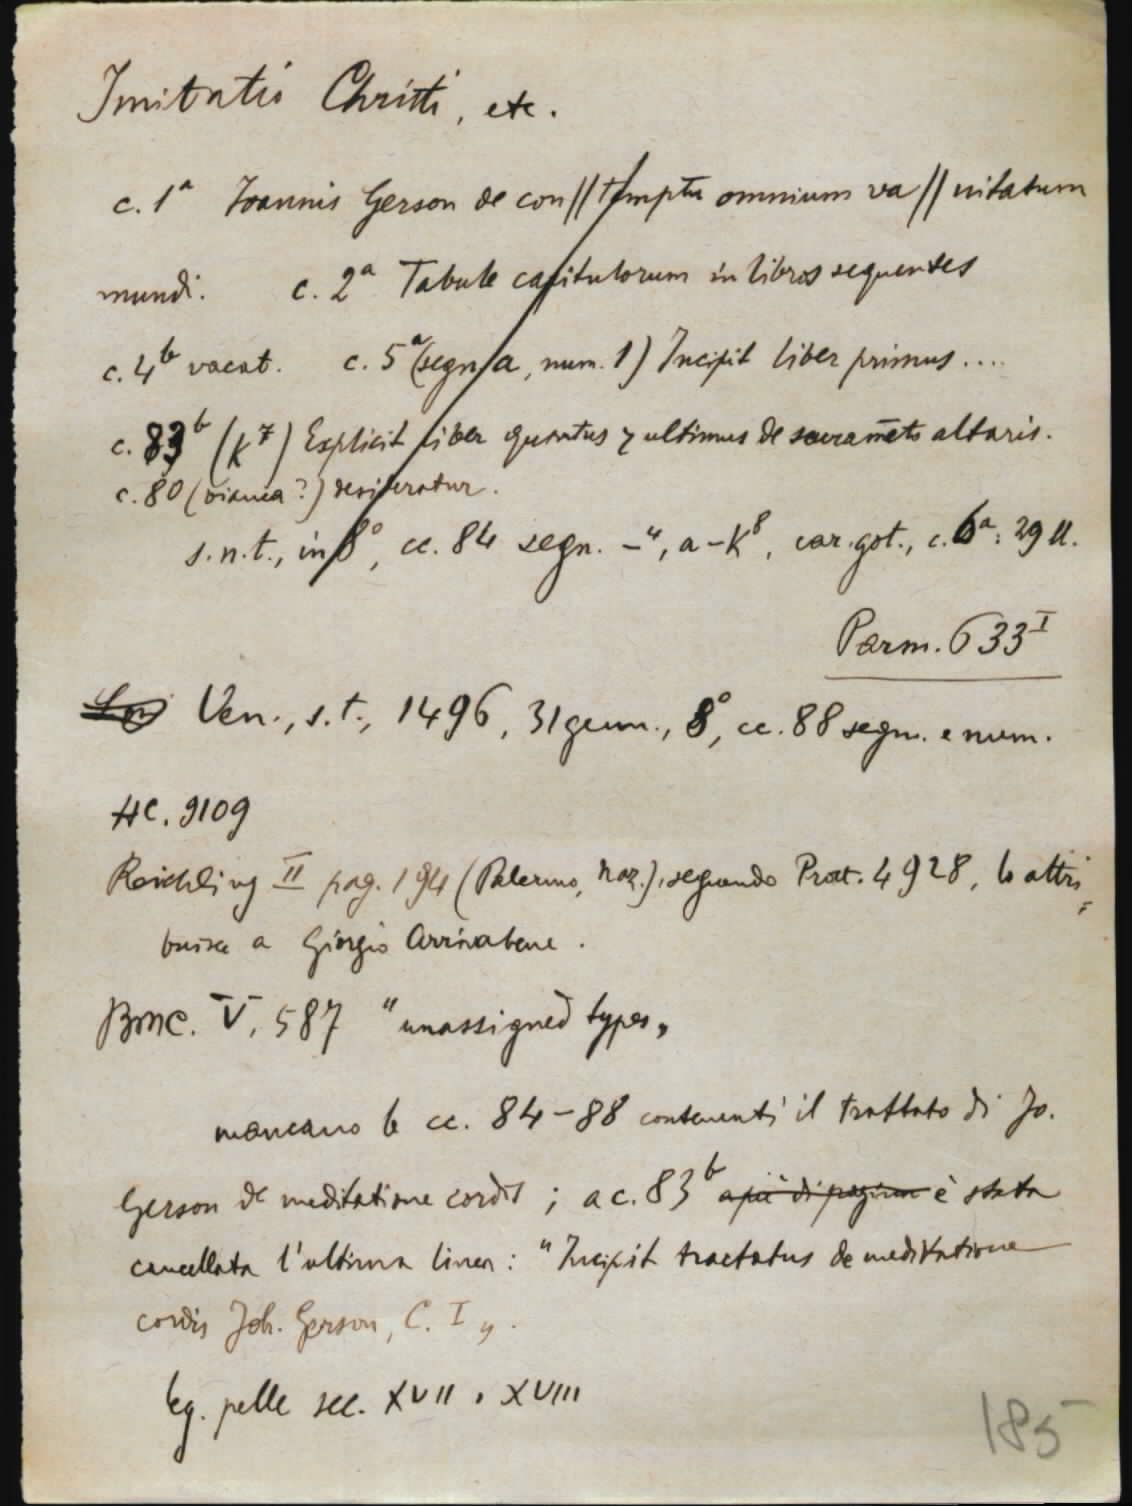 Imitatio Christi, etc.
c. 1ª Joannis Gerson de con||temptu omnium va||nitatum
mundi. c. 2ª Tabule capitulorum in libros sequentes
c. 4ᵇ vacat. c. 5ª (segn. a, num. 1) Incipit liber primus....
c. 83ᵇ (k7) Explicit liber quartus ⁊ ultimus de sacramēto altaris.
c. 80 (bianca?) desideratur.
s.n.t., in 8°, cc. 84 segn. –⁴, a–k⁸, car. got., c. 6ª: 29 ll.
Parm. 633ᴵ
Ven., s.t., 1496, 31 genn., 8°, cc. 88 segn. e num.
HC. 9109
Reichling II pag. 194 (Palermo, Naz.), seguendo Proct. 4928, lo attri=
buisce a Giorgio Arrivabene.
BMC. V, 587 "unassigned types„
mancano le cc. 84–88 contenenti il trattato di Jo.
Gerson de meditatione cordis; a c. 83ᵇ a piè di pagina è stata
cancellata l'ultima linea: "Incipit tractatus de meditatione
cordis Joh. Gerson, C. I„.
leg. pelle sec. XVII o XVIII
185